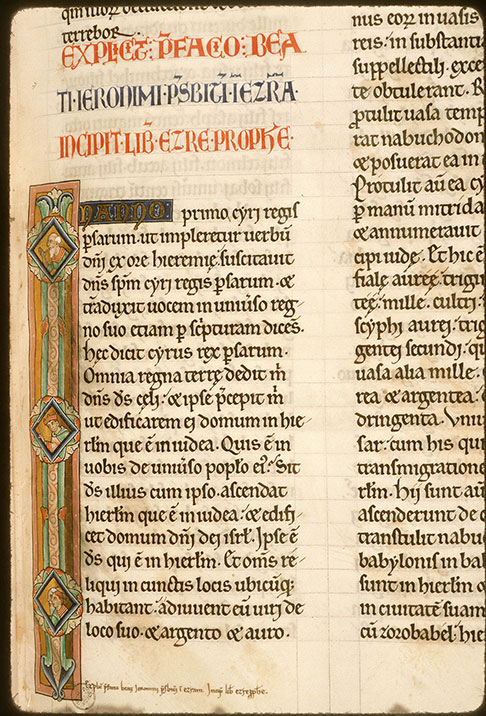 terrebor.
EXPLICIT: P̄FACIO: BEA
TI IERONIMI P̄SBIT̄I: I EZRA.
INCIPIT LIB̄ EZRE PROPHE
IN ANNO primo, cyri regis
p̄sarum ut impleretur uerbū
dn̄i ex ore hieremie, suscitauit
dn̄s sp̄m cyri regis p̄sarum. &
traduxit uocem in uniuso reg-
no suo etiam p̄ scripturam dicēs.
hec dicit cyrus rex p̄sarum.
Omnia regna terrę dedit m̄
dn̄s d̄s cęli: & ipse p̄cepit m̄
ut edificarem ei domum in hie-
rlm̄ que ē in iudea. Quis ē in
uobis de uniuso poplo ei: Sit
d̄s illius cum ipso. ascendat
hierlm̄ que ē in iudea: & edifi-
cet domum dn̄i dei isrl̄. Ipse ē
d̄s qui ē in hierlm̄. Et om̄s re-
liqui in cunctis locis ubicūq;
habitant: adiuuent eū uiri de
loco suo. & argento & auro.
nus eoꝝ in uasis
reis: in substanti
suppellectili. exce
te obtulerant. R
protulit uasa temp
rat nabuchodon
& posuerat ea in
Protulit aū ea cy
p̄ manū mitrida
& annumerauit
cipi iude. Et hic ē
fiale aureę: trigi
teę mille. cultri:
scyphi aurei: trig
gentei secundi: qu
uasa alia mille:
rea & argentea:
dringenta. Vniu
sar: cum his qui
transmigratione
rlm̄. Hii sunt aū
ascenderunt de c
transtulit nabu
babylonis in bab
sunt in hierlm̄ &
in ciuitatē suam
cū zorobabel: hie